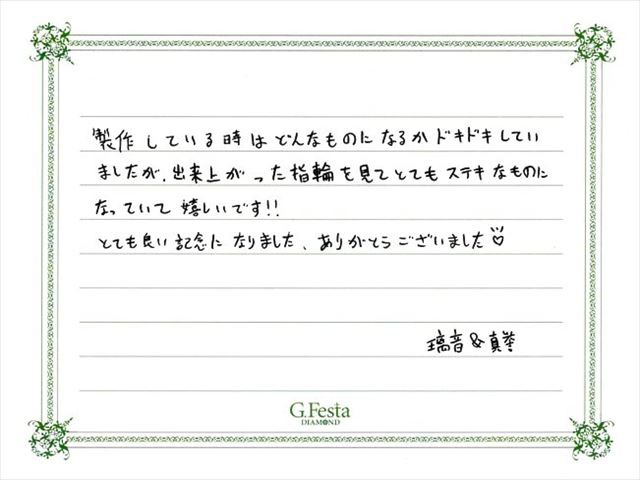 製作している時はどんなものになるかドキドキしてい
ましたが、出来上がった指輪を見てとてもステキなものに
なっていて嬉しいです!!
とても良い記念になりました、ありがとうございました♡
璃音&真
G.Festa
DIAMOND